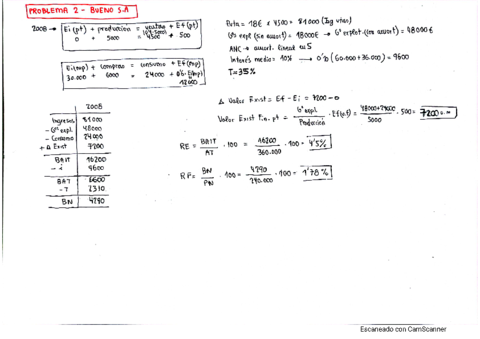 PROBLEMA 2 - BUENO S.A
2008 → Ei(pt) + producción = ventas + Ef(pt)
0 + 5000 = 4500 + 500
Ei(mp) + compras = consumo + Ef(mp)
30.000 + 6000 = 24000 +
12000
Pvta = 18€ x 4500 = 81000 (Ing vtas)
Gº expl (sin amort) = 48000€
ANC → amort. lineal
Interés medio = 10% → 0'10 (60.000+36.000) = 9600
T = 35%
2008
Ingresos 81000
- Gº expl. 48000
- Consumo 24000
+ Δ Exist 7200
BAIT 16200
- i 9600
BAT 6600
- T 2310
BN 4290
Δ Valor Exist = Ef - Ei = 7200 - 0
Valor Exist = Gº expl. / Producción · Ef(pt) = 48000+24000 / 5000 · 500 = 7200
RE = BAIT / AT · 100 = 16200 / 360.000 · 100 = 4'5%
RF = BN / PN · 100 = 4290 / 240.000 · 100 = 1'78%
Escaneado con CamScanner